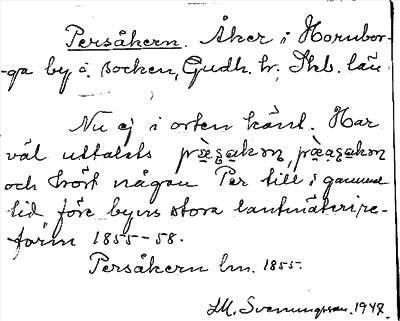 Persåkern. Åker i Hornbor-
ga by o. socken, Gudh. hr; Skb. län
Nu ej i orten känt. Har
väl uttalats
och hört någon Per till i gammal
tid, före byns stora lantmäterire-
form 1855-58.
Persåkern lm. 1855.
LM. Svenungsson. 1947.